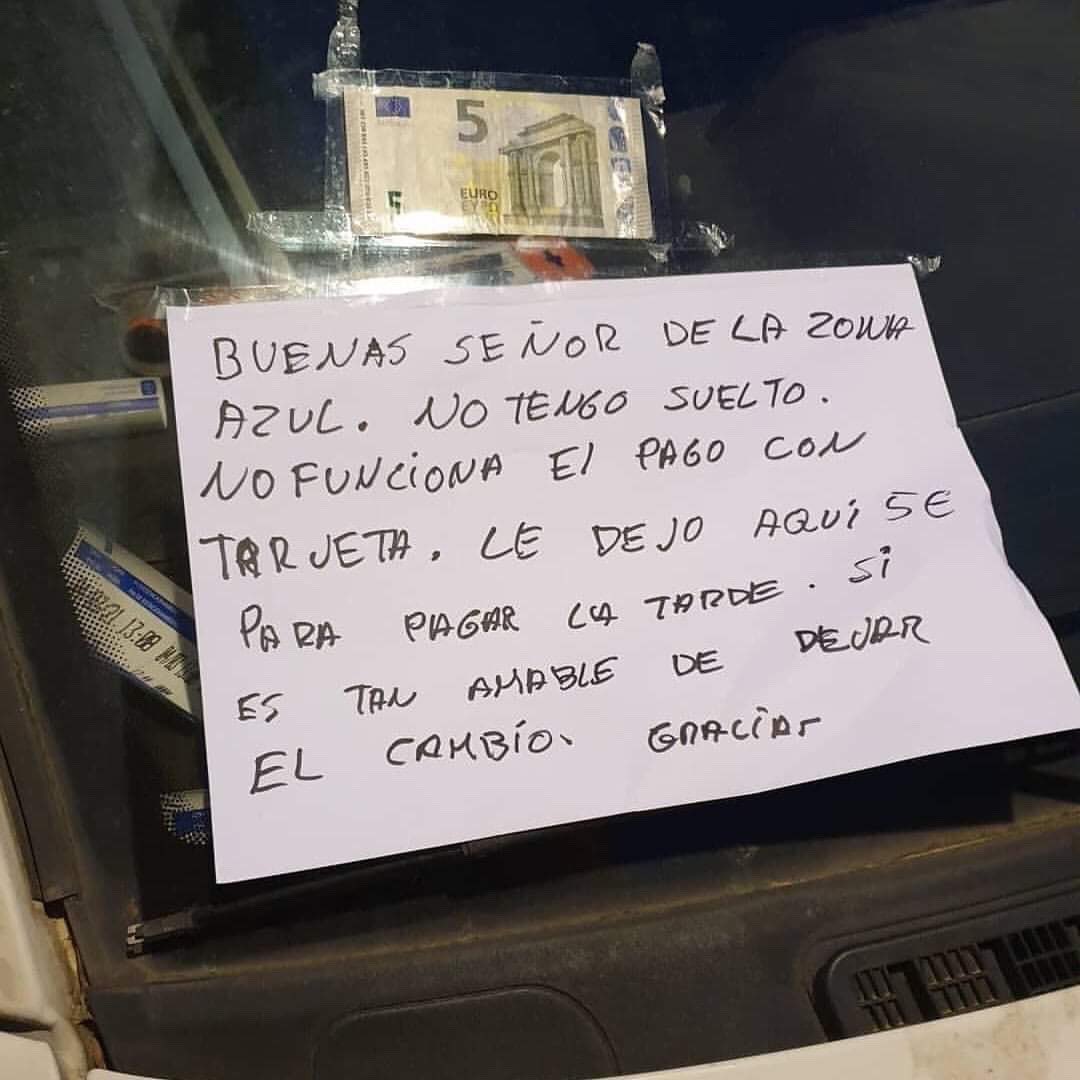 5
EURO
ΕΥΡΩ
BUENAS SEÑOR DE LA ZONA
AZUL. NO TENGO SUELTO.
NO FUNCIONA El PAGO CON
TARJETA. LE DEJO AQUÍ 5€
PARA PAGAR LA TARDE. Si
ES TAN AMABLE DE DEJAR
EL CAMBÍO. GRACIAS